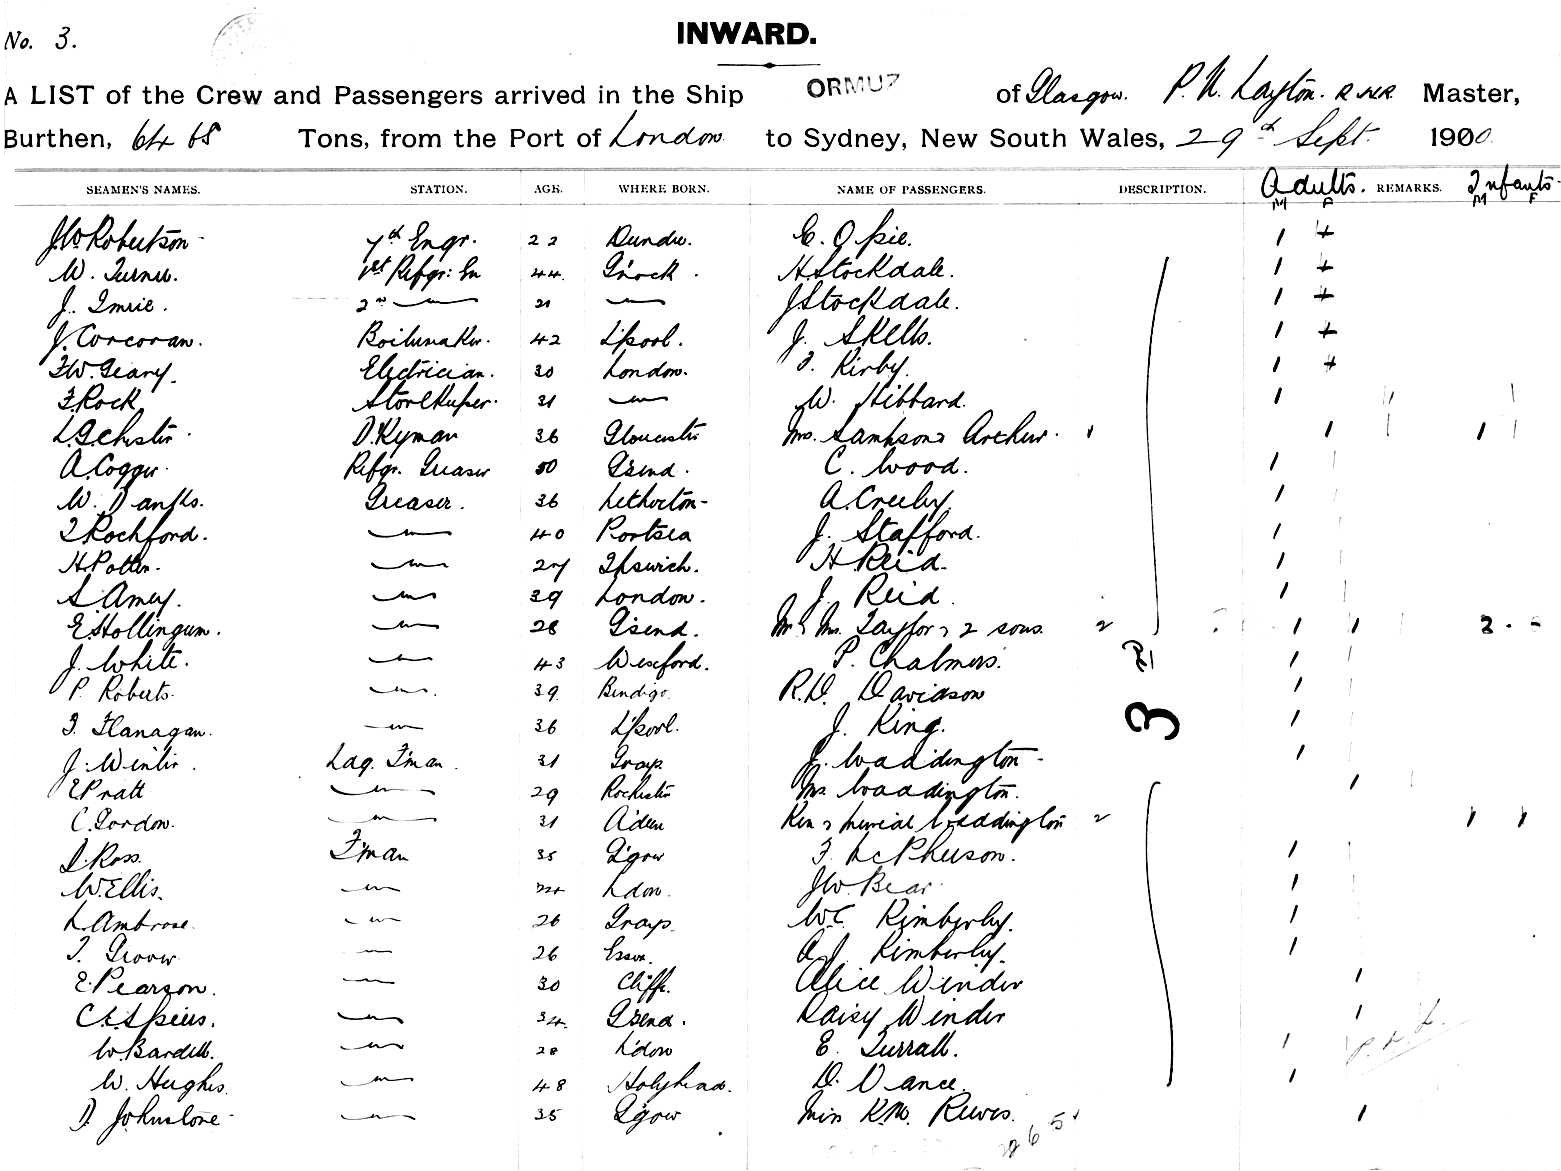 No. 3.
INWARD.
A LIST of the Crew and Passengers arrived in the Ship ORMUZ of Glasgow. P. N. Layton. R.N.R. Master,
Burthen, 6468 Tons, from the Port of London to Sydney, New South Wales, 29th Sept. 1900.
SEAMEN'S NAMES. STATION. AGE. WHERE BORN. NAME OF PASSENGERS. DESCRIPTION. Adults. REMARKS. Infants.
M F M F
J.W Robertson 7th Engr. 22 Dundee. E. Opie. 1 +
W. Turner. 1st Refgr: En 44 G'nock. H Stockdale. 1 +
J. Imrie. 2nd 21 J Stockdale. 1 +
J. Corcoran. Boilermaker. 42 L'pool. J. Skells. 1 +
F.W. Geary. Electrician. 30 London. F. Kirby. 1 +
F. Rock Storekeeper. 31 W. Hibbard. 1
D.Kyman 36 Gloucester Mrs. Sampson & Arthur. 1 1 1
A. Cogger. Refgr. Greaser 50 G'send. C. Wood. 1
W. Danks. Greaser. 36 A. Creeby 1
T Rochford. 40 Portsea J. Stafford. 1
H Potter. 27 Ipswich. H Reid. 1
S. Amey. 39 London. J. Reid. 1
E Hollingum. 28 G'send. Mr & Mrs. Taylor & 2 sons. 2 1 1 2
J. White. 43 Wexford. P. Chalmers. 1
P. Roberts. 39 Bendigo R.D. Davidson 1
3rd
T. Flanagan. 36 L'pool. J. King. 1
J. Winter. Lag. F'man. 31 Grays J. Waddington 1
E Pratt 29 Rochester Mrs Waddington. 1
C. Gordon. 31 A'deen Ken & Muriel Waddington 2 1 1
D. Ross. F'man 35 G'gow F. McPherson. 1
W. Ellis. 24 L'don. J W. Bear 1
L Ambrose. 26 Grays. W.C. Kimberley. 1
T. Groves 26 Essex. A J. Kimberley. 1
E. Pearson. 30 Cliffe. Alice Winder 1
C.E. Spiers. 34 G'send. Daisy Winder 1
W Bardell. 28 L'don E. Turrall. 1
W. Hughes. 48 Holyhead. D. Vance. 1
D Johnstone 35 G'gow Miss K.M. Reeves. 1
265